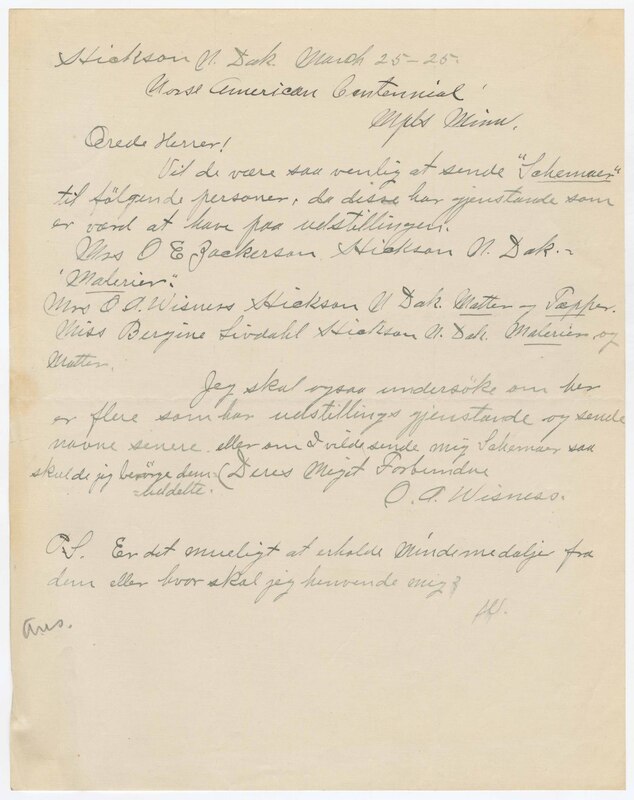 Hickson N. Dak. March 25-25.
Norse American Centennial
Mpls Minn.
Ærede Herrer!
Vil de være saa venlig at sende "Schemaer"
til følgende personer, da disse har gjenstande som
er værd at have paa udstillingen.
Mrs O E Zackerson Hickson N. Dak.-
"Malerier".
Mrs O. A. Wisness Hickson N Dak. Matter og Tæpper.
Miss Bergine Livdahl Hickson N. Dak. Malerier og
Matter.
Jeg skal ogsaa undersöke om her
er flere som har udstillings gjenstande og sende
navne senere eller om I vilde sende mig Schemaer saa
skulde jeg besörge dem (Deres Megit Forbundne
uddelte.
O. A. Wisness.
P.S. Er det mueligt at erholde Mindemedaljer fra
dem eller hvor skal jeg henvende mig?
Ans.